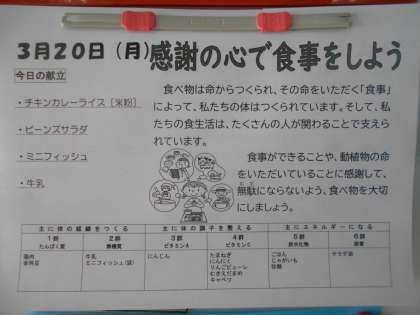 3月20日（月）感謝の心で食事をしよう
今日の献立
・チキンカレーライス［米粉］
・ビーンズサラダ
・ミニフィッシュ
・牛乳
食べ物は命からつくられ、その命をいただく「食事」
によって、私たちの体はつくられています。そして、私
たちの食生活は、たくさんの人が関わることで支えら
れています。
食事ができることや、動植物の命
をいただいていることに感謝して、
無駄にならないよう、食べ物を大切
にしましょう。
主に体の組織をつくる 主に体の調子を整える 主にエネルギーになる
1群 2群 3群 4群 5群 6群
たんぱく質 無機質 ビタミンA ビタミンC 炭水化物 脂質
鶏肉 牛乳 にんじん たまねぎ ごはん サラダ油
ミニフィッシュ(袋) にんにく じゃがいも
りんごピューレ 砂糖
むきえだまめ
キャベツ